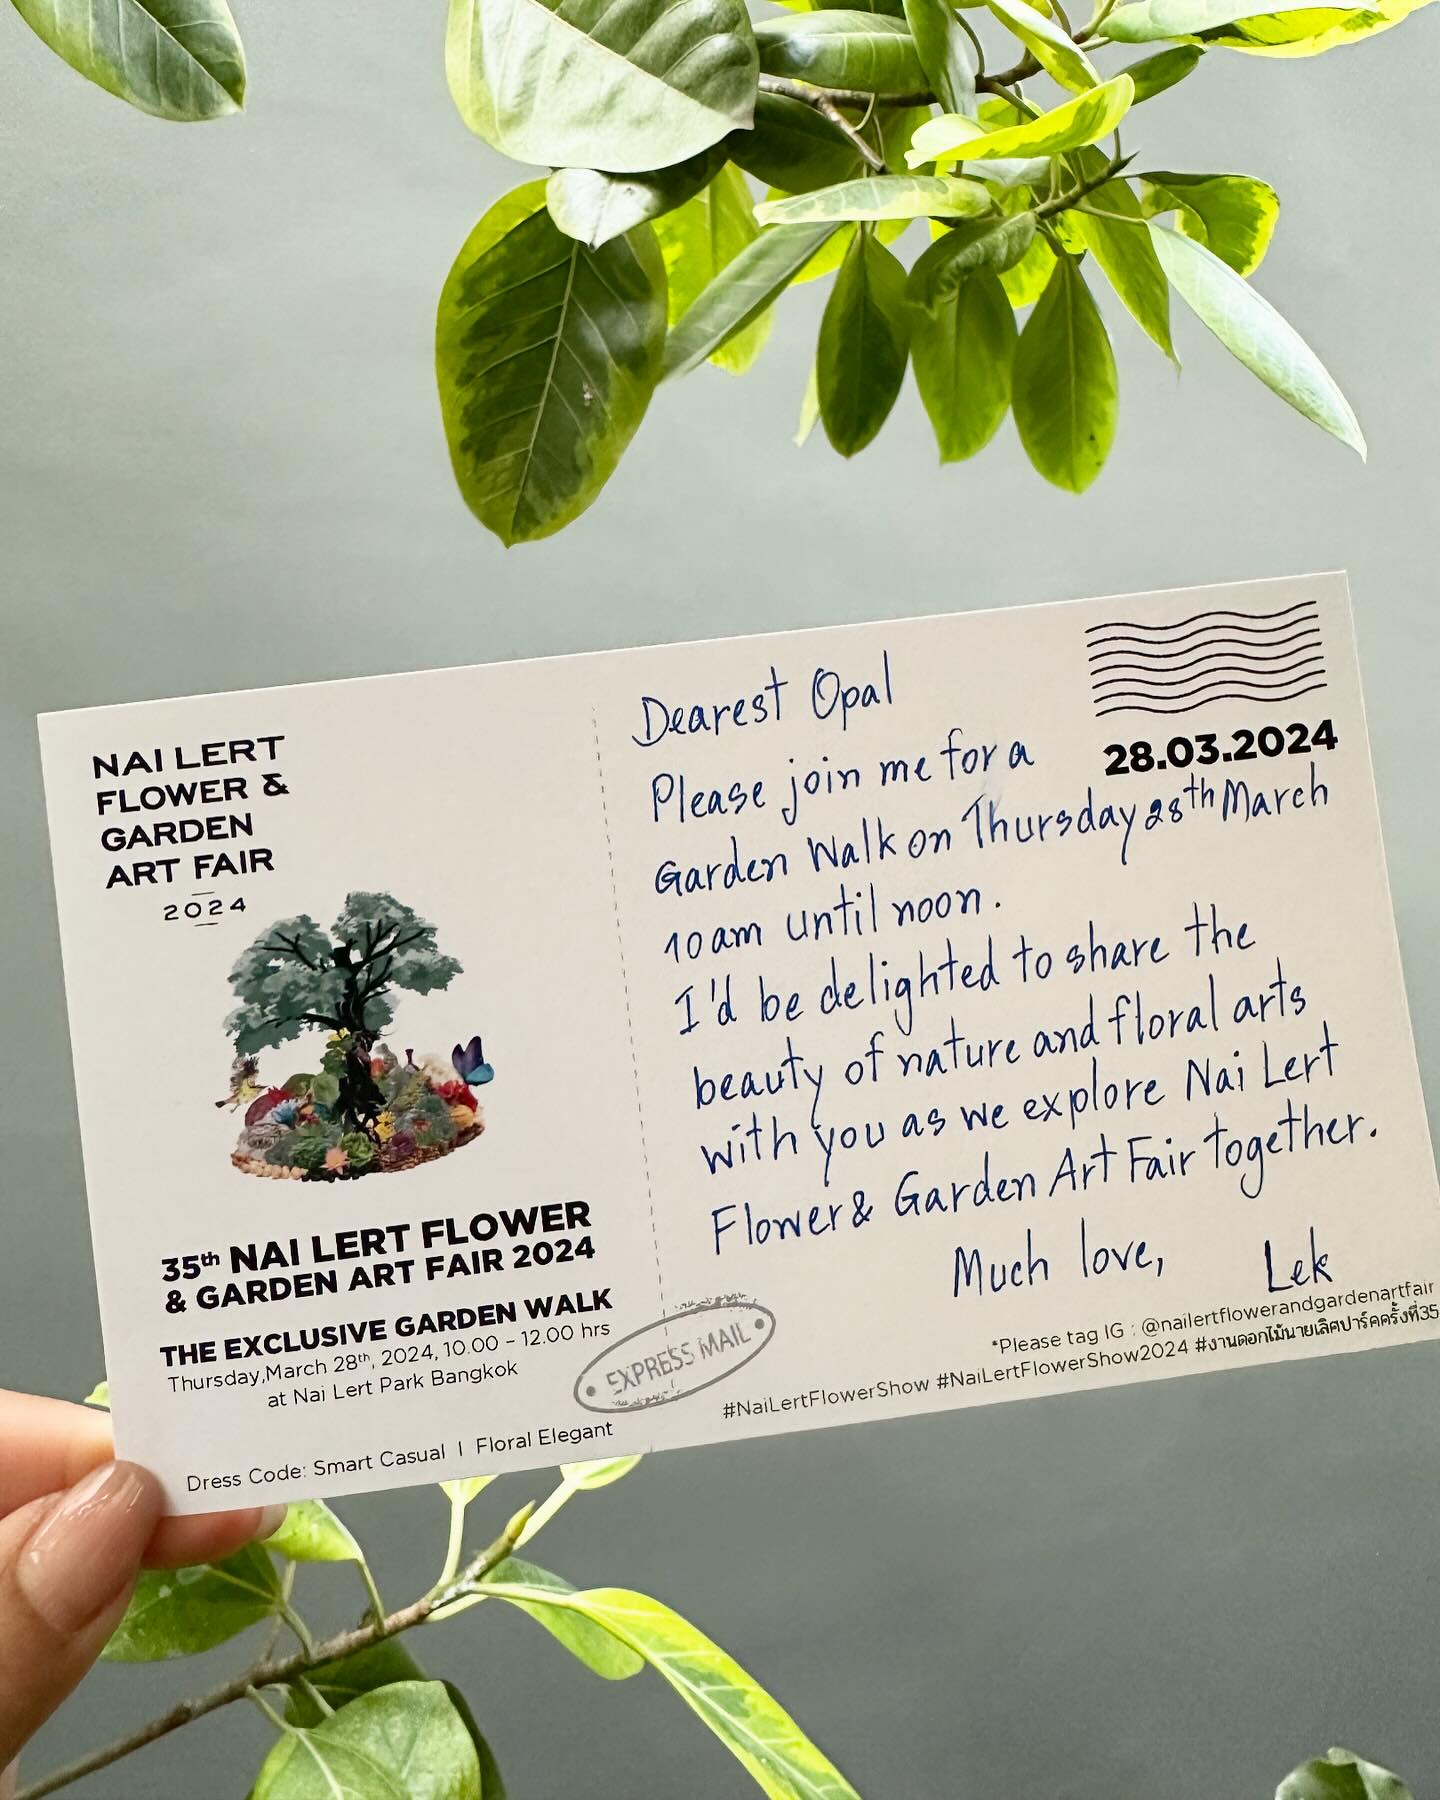 NAI LERT
FLOWER &
GARDEN
ART FAIR
2024
35th NAI LERT FLOWER
& GARDEN ART FAIR 2024
THE EXCLUSIVE GARDEN WALK
Thursday,March 28th, 2024, 10.00 - 12.00 hrs
at Nai Lert Park Bangkok
Dress Code: Smart Casual | Floral Elegant
EXPRESS MAIL
28.03.2024
Dearest Opal
Please join me for a
Garden Walk on Thursday 28th March
10am until noon.
I'd be delighted to share the
beauty of nature and floral arts
with you as we explore Nai Lert
Flower & Garden Art Fair together.
Much love, Lek
*Please tag IG : @nailertflowerandgardenartfair
#NaiLertFlowerShow #NaiLertFlowerShow2024 #งานดอกไม้นายเลิศปาร์คครั้งที่35